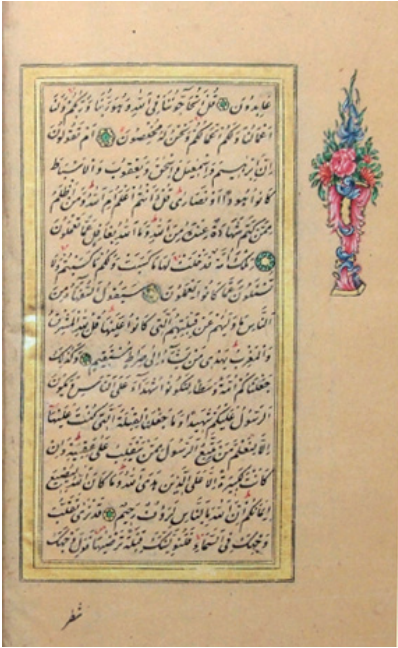 عابدون قل أتحاجوننا في الله وهو ربنا وربكم ولنا
أعمالنا ولكم أعمالكم ونحن له مخلصون أم تقولون
إن إبرهيم وإسمعيل وإسحق ويعقوب والأسباط
كانوا هودا أو نصارى قل ءأنتم أعلم أم الله ومن أظلم
ممن كتم شهادة عنده من الله وما الله بغافل عما تعملون
تلك أمة قد خلت لها ما كسبت ولكم ما كسبتم ولا
تسئلون عما كانوا يعملون سيقول السفهاء من
الناس ما وليهم عن قبلتهم التي كانوا عليها قل لله المشرق
والمغرب يهدي من يشاء إلى صراط مستقيم وكذلك
جعلناكم أمة وسطا لتكونوا شهداء على الناس ويكون
الرسول عليكم شهيدا وما جعلنا القبلة التي كنت عليها
إلا لنعلم من يتبع الرسول ممن ينقلب على عقبيه وإن
كانت لكبيرة إلا على الذين هدى الله وما كان الله ليضيع
إيمانكم إن الله بالناس لرؤف رحيم قد نرى تقلب
وجهك في السماء فلنولينك قبلة ترضيها فول وجهك
شطر